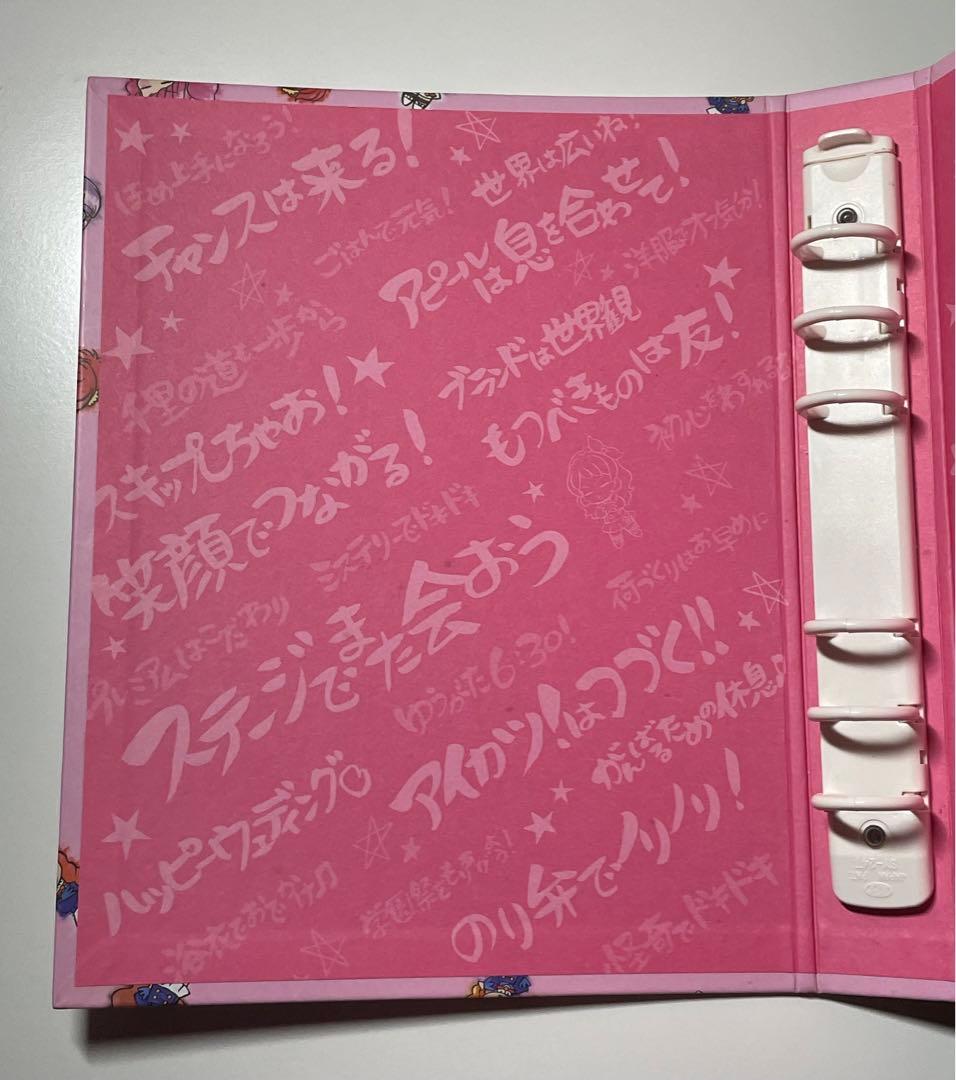 ほめ上手になろう!
チャンスは来る!
世界は広いね!
ごはんで元気!
アピールは息を合わせて!
洋服でオフ気分!
千里の道も一歩から
ブランドは世界観
スキップしちゃお!
もつべきものは友!
初心を忘れるな
笑顔でつながる!
ミステリーでドキドキ
荷づくりはお早めに
プレミアムはこだわり
ステージでまた会おう
ゆうがた6:30!
アイカツ!はつづく!!
がんばるための休息♪
ハッピーウェディング♡
浴衣でおでかけ♫
のり弁でノリノリ!
怪奇でドキドキ